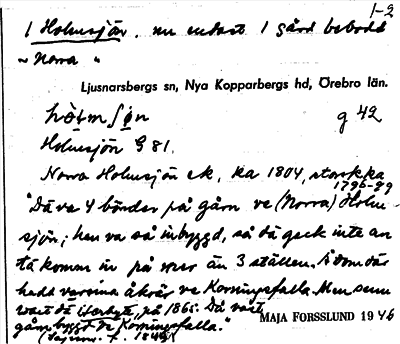 1-2
1 Holmsjön, nu endast 1 gård bebodd
~ Norra "
Ljusnarsbergs sn, Nya Kopparbergs hd, Örebro län.
g 42
Holmsjön G 81.
Norra Holmsjön ek, ka 1804, storskka
1796-89
"Då va 4 bönder på gårn ve (Norra) Holm-
sjön; hen va så inbyggd, så dä geck inte an
tå komma in på mer än 3 ställen. Å dom där
hadd varsina åkrar ve Korningsfalla. Men senn
vart dä utbytt, på 1865. Då vart
gårn byggd ve Korningsfalla."
MAJA FORSSLUND 1946